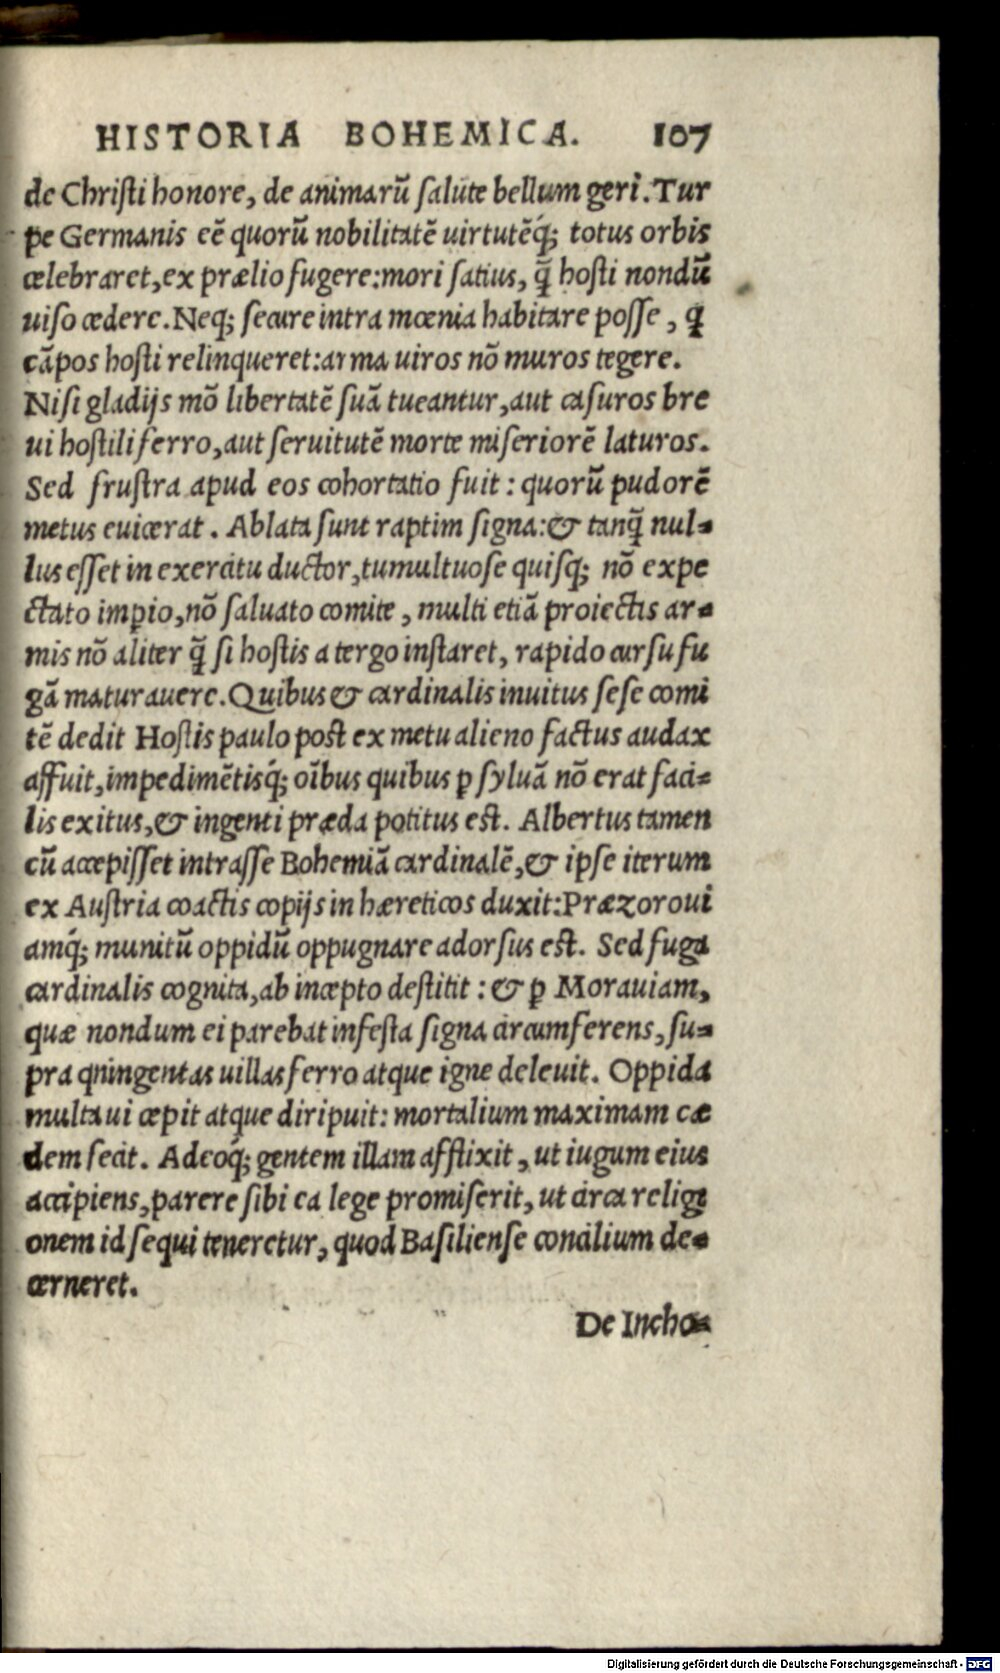 HISTORIA BOHEMICA. 107
de Christi honore, de animarũ salute bellum geri. Tur
pe Germanis eẽ quorũ nobilitatẽ uirtutẽq́; totus orbis
celebraret, ex prælio fugere: mori satius, q̃ hosti nondũ
uiso cedere. Neq; secure intra mœnia habitare posse, q
cãpos hosti relinqueret: arma uiros nõ muros tegere.
Nisi gladijs mõ libertatẽ suã tueantur, aut casuros bre
ui hostili ferro, aut seruitutẽ morte miseriorẽ laturos.
Sed frustra apud eos cohortatio fuit: quorũ pudorẽ
metus euicerat. Ablata sunt raptim signa: & tanq̃ nul-
lus esset in exercitu ductor, tumultuose quisq; nõ expe
ctato imꝑio, nõ saluato comite, multi etiã proiectis ar-
mis nõ aliter q̃ si hostis a tergo instaret, rapido cursu fu
gã maturauere. Quibus & cardinalis inuitus sese comi
tẽ dedit Hostis paulo post ex metu alieno factus audax
affuit, impedimẽtisq́; oĩbus quibus ꝑ syluã nõ erat faci-
lis exitus, & ingenti præda potitus est. Albertus tamen
cũ accepisset intrasse Bohemiã cardinalẽ, & ipse iterum
ex Austria coactis copijs in hæreticos duxit: Præzoroui
amq́; munitũ oppidũ oppugnare adorsus est. Sed fuga
cardinalis cognita, ab incepto destitit: & ꝑ Morauiam,
quæ nondum ei parebat infesta signa circumferens, su-
pra qningentas uillas ferro atque igne deleuit. Oppida
multa ui cepit atque diripuit: mortalium maximam cæ
dem fecit. Adeoq́; gentem illam afflixit, ut iugum eius
accipiens, parere sibi ea lege promiserit, ut circa religi
onem id sequi teneretur, quod Basiliense concilium de-
cerneret.
De Incho-
Digitalisierung gefördert durch die Deutsche Forschungsgemeinschaft - DFG